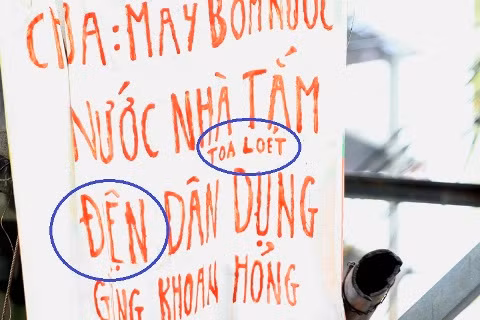 CHƯA : MAY BƠM NƯỚC
NƯỚC NHÀ TẮM
TOA LOẸT
ĐỆN DÂN DỤNG
GING KHOAN HỎNG